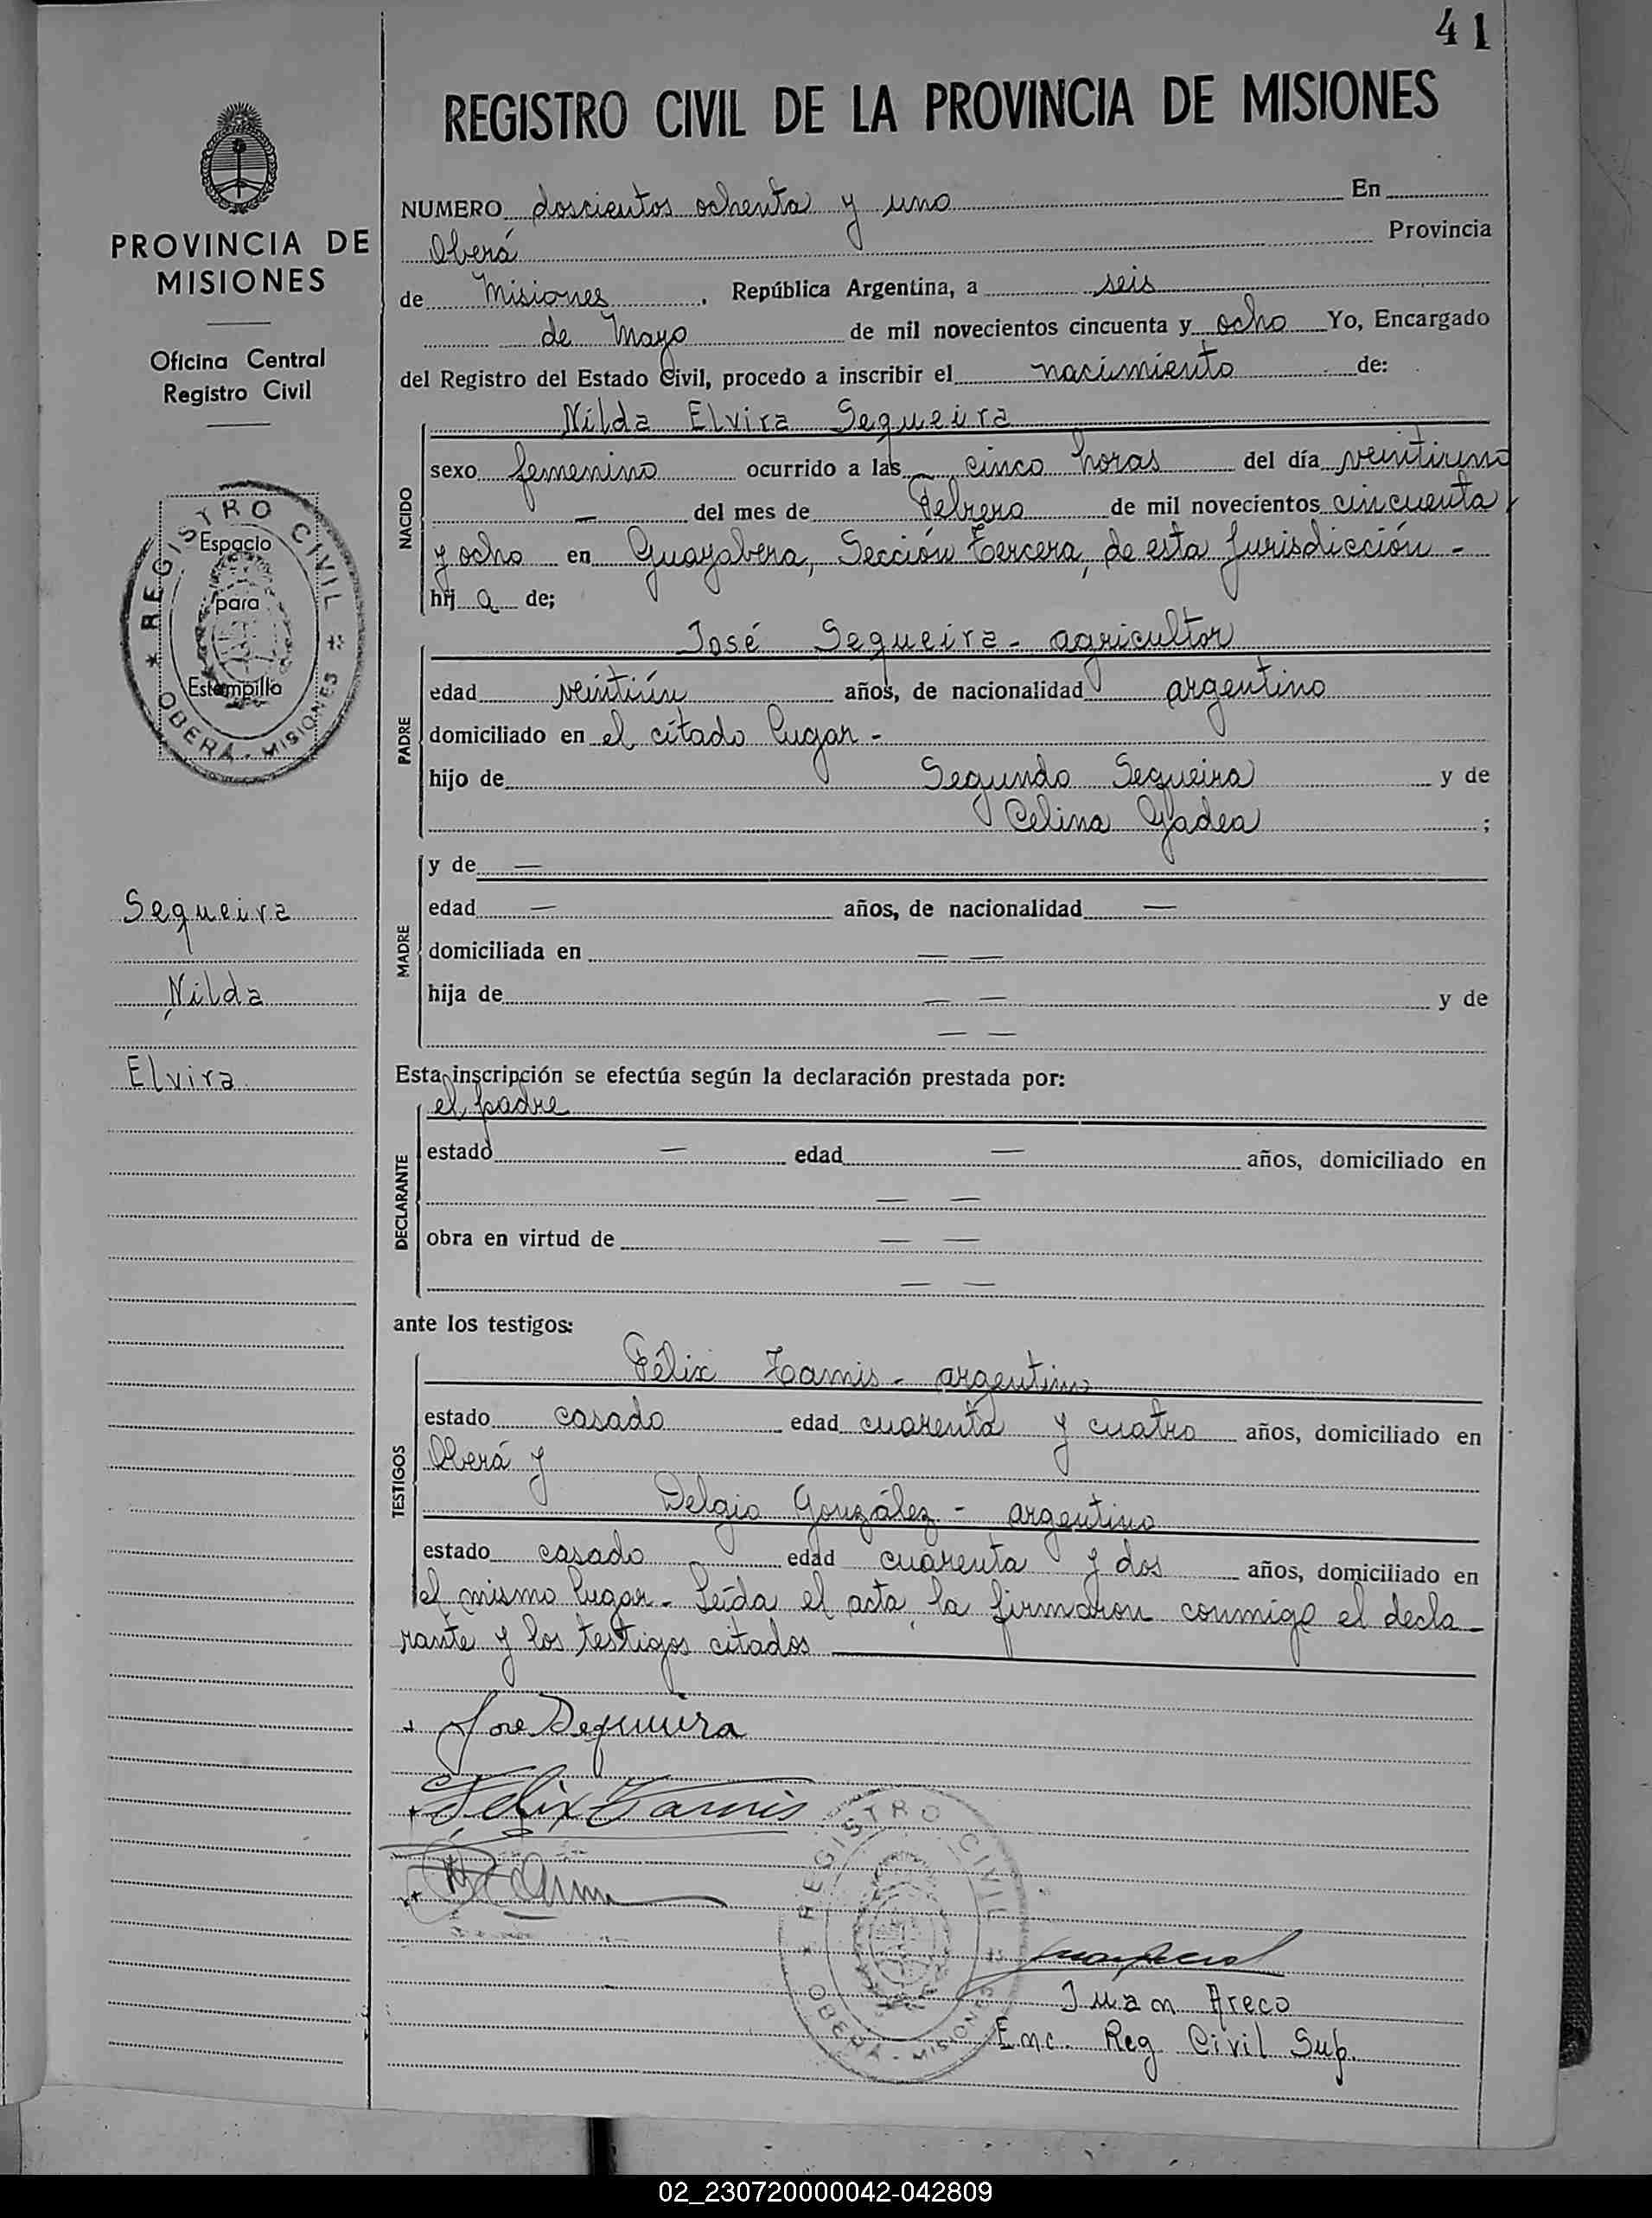 41
REGISTRO CIVIL DE LA PROVINCIA DE MISIONES
PROVINCIA DE
MISIONES
Oficina Central
Registro Civil
REGISTRO CIVIL
OBERÁ - MISIONES
Espacio
para
Estampilla
Sequeira
Nilda
Elvira
NUMERO doscientos ochenta y uno En
Oberá Provincia
de Misiones, República Argentina, a seis
de Mayo de mil novecientos cincuenta y ocho Yo, Encargado
del Registro del Estado Civil, procedo a inscribir el nacimiento de:
NACIDO
Nilda Elvira Sequeira
sexo femenino ocurrido a las cinco horas del día veintiuno
— del mes de Febrero de mil novecientos cincuenta
y ocho en Guayabera, Sección Tercera, de esta Jurisdicción -
hij a de;
PADRE
José Sequeira - agricultor
edad veintiún años, de nacionalidad argentino
domiciliado en el citado lugar -
hijo de Segundo Sequeira y de
Celina Gadea ;
MADRE
y de —
edad — años, de nacionalidad —
domiciliada en — —
hija de — — y de
— —
Esta inscripción se efectúa según la declaración prestada por:
DECLARANTE
el padre
estado — edad — años, domiciliado en
— —
obra en virtud de — —
— —
ante los testigos:
TESTIGOS
Félix Tamis - argentino
estado casado edad cuarenta y cuatro años, domiciliado en
Oberá y
Delgio González - argentino
estado casado edad cuarenta y dos años, domiciliado en
el mismo lugar - Leída el acta, la firmaron conmigo el decla-
rante y los testigos citados
Jose Sequeira
Felix Tamis
REGISTRO CIVIL
OBERÁ - MISIONES
Juan Areco
Enc. Reg Civil Sup.
02_230720000042-042809